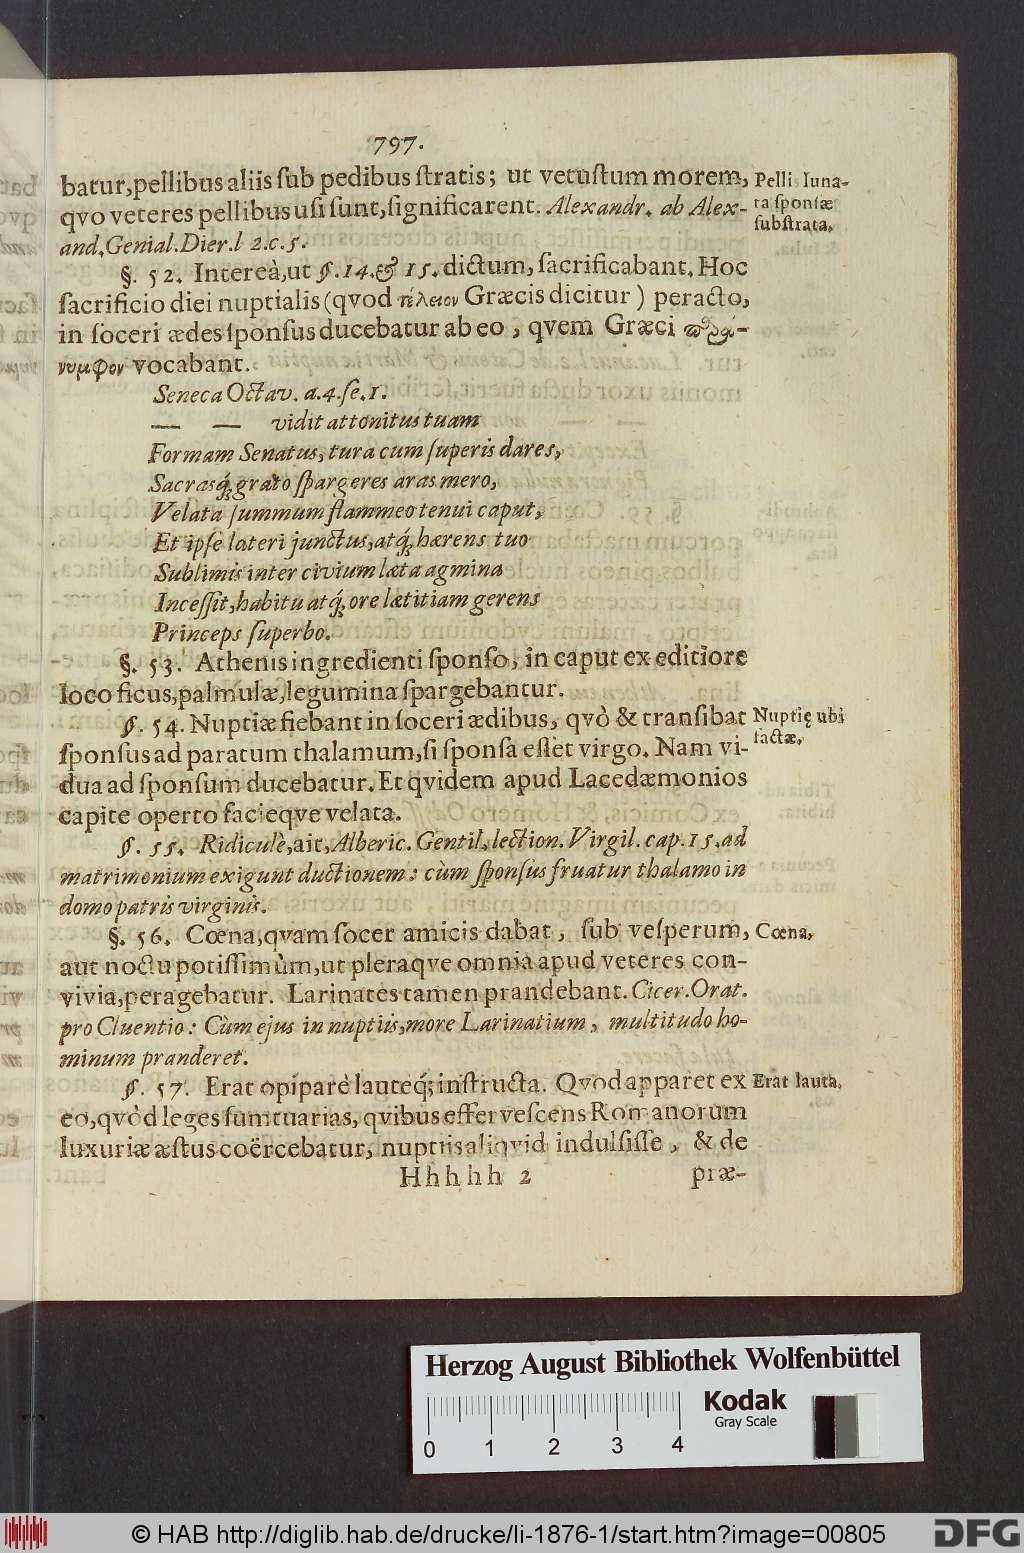 797.
batur, pellibus aliis ſub pedibus ſtratis; ut vetuſtum morem,
qvo veteres pellibus uſi ſunt, ſignificarent. Alexandr. ab Alex-
and. Genial. Dier. l 2. c. 5.
Pelli luna-
ta ſponſæ
ſubſtrata.
§. 52. Intereà, ut §. 14. & 15. dictum, ſacrificabant. Hoc
ſacrificio diei nuptialis (qvod τέλειον Græcis dicitur) peracto,
in ſoceri ædes ſponſus ducebatur ab eo, qvem Græci παρά-
νυμφον vocabant.
Seneca Octav. a. 4. ſc. 1.
— — vidit attonitus tuam
Formam Senatus, tura cum ſuperis dares,
Sacrasq́; grato ſpargeres aras mero,
Velata ſummum flammeo tenui caput,
Et ipſe lateri junctus, atq́; hærens tuo
Sublimis inter civium læta agmina
Inceſſit, habitu atq́; ore lætitiam gerens
Princeps ſuperbo.
§. 53. Athenis ingredienti ſponſo, in caput ex editiore
loco ficus, palmulæ, legumina ſpargebantur.
§. 54. Nuptiæ fiebant in ſoceri ædibus, qvò & tranſibat
ſponſus ad paratum thalamum, ſi ſponſa eſſet virgo. Nam vi-
dua ad ſponſum ducebatur. Et qvidem apud Lacedæmonios
capite operto facieqve velata.
Nuptię ubi
factæ.
§. 55. Ridiculè, ait, Alberic. Gentil. lection. Virgil. cap. 15. ad
matrimonium exigunt ductionem: cùm ſponſus fruatur thalamo in
domo patris virginis.
§. 56. Cœna, qvam ſocer amicis dabat, ſub veſperum,
aut noctu potiſſimùm, ut pleraqve omnia apud veteres con-
vivia, peragebatur. Larinates tamen prandebant. Cicer. Orat.
pro Cluentio: Cùm ejus in nuptiis, more Larinatium, multitudo ho-
minum pranderet.
Cœna,
§. 57. Erat opiparè lauteq́; inſtructa. Qvod apparet ex
eo, qvòd leges ſumtuarias, qvibus efferveſcens Romanorum
luxuriæ æſtus coërcebatur, nuptiis aliqvid indulſiſſe, & de
Erat lauta.
Hhhhh 2
præ-
Herzog August Bibliothek Wolfenbüttel
0 1 2 3 4
Kodak
Gray Scale
© HAB http://diglib.hab.de/drucke/li-1876-1/start.htm?image=00805
DFG